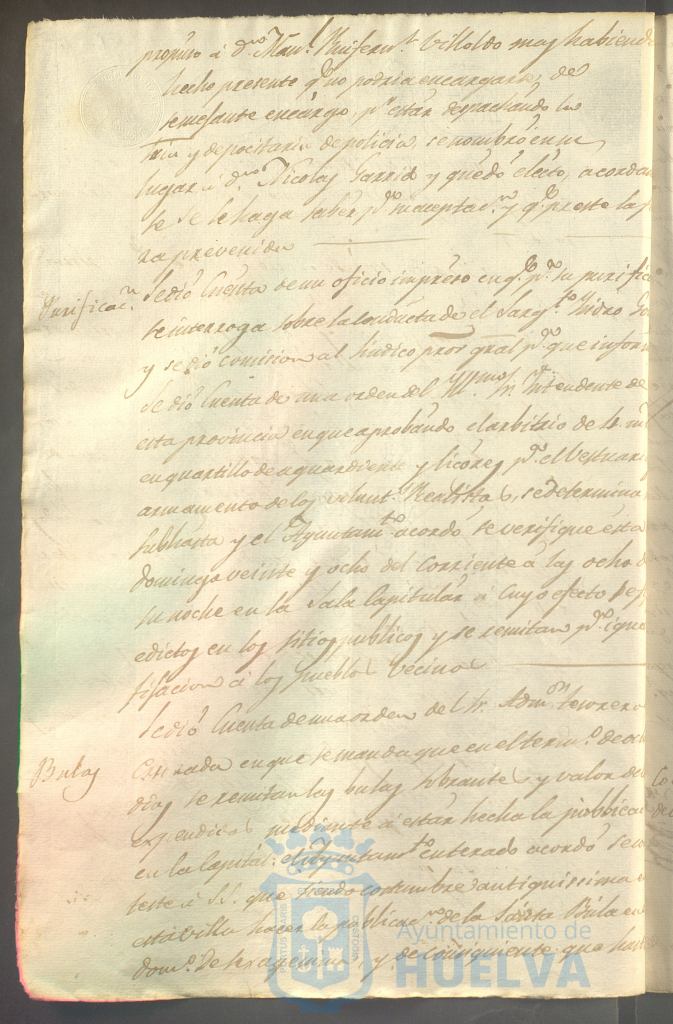 propuso á dⁿ Manˡ Villoldo mas habiendo
hecho presente qᵉ no podria encargarse de
semejante encargo, pʳ estar despachando la
ria y depocitaria de policia, se nombró en su
lugar á dⁿ Nicolas Garrido y quedó electo, acordan
se se le haga saber pᵃ su aceptacⁿ y qᵉ preste la ju
ra prevenida
Purificacⁿ
Se dió Cuenta de un oficio impreso en qᵉ pᵃ su purific
se interroga sobre la conducta de el Sargᵗᵒ Isidro
y se dió comision al Sindico procʳ gral pᵃ que inform
Se dió Cuenta de una orden del Yllmo Sʳ Yntendente de
esta provincia en que aprobando el arbitrio de
en quartillo de aguardiente y licores pᵃ el Vestuari
armamento de los volunt Realistas, se determina
subhasta y el Ayuntamᵗᵒ acordó se verifique esta
domingo veinte y ocho del corriente á las ocho d
su noche en la Sala Capitular á cuyo efecto se
edictos en los sitios publicos y se remitan pᵃ igua
fijacion á los pueblos vecinos
Bulas
Se dió Cuenta de una orden del Sʳ Admᵒʳ tesorero
Cruzada en que se manda que en el termᵒ de och
dias se remitan las bulas sobrantes y valor de
expendidas mediante á estar hecha la publicac
en la Capital: el Ayuntamᵗᵒ enterado acordó se con
teste á S.S. que siendo costumbre antiquissima e
esta villa hacer la publicacⁿ de la Santa Bula en
domᵒ de Sexagesima, y de consiguiente que hast
PORTUS MARIS
CUSTODIA
Ayuntamiento de
HUELVA